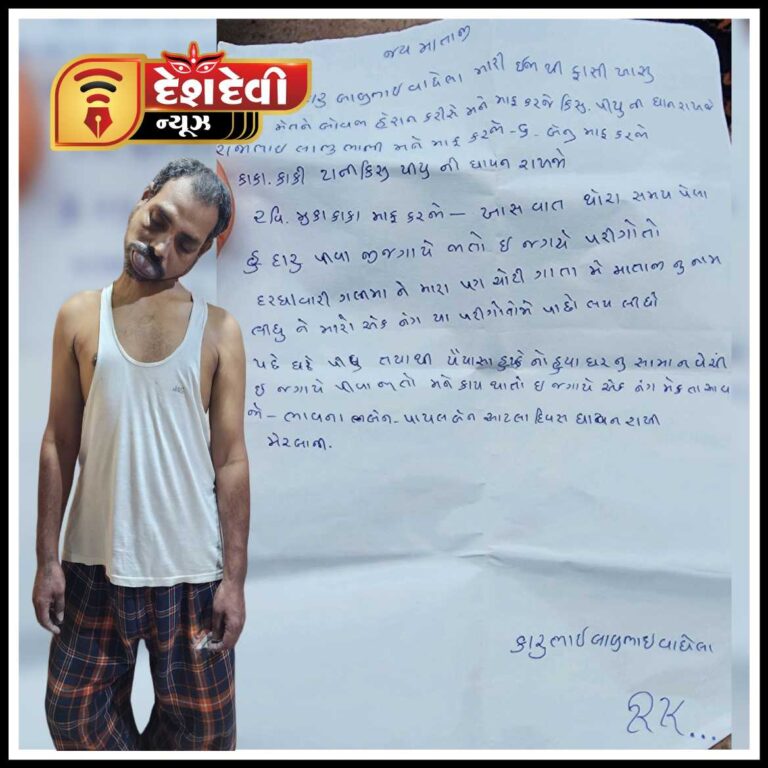 દેશદેવી
ન્યૂઝ
જય માતાજી
કારુ બાબુભાઇ વાઘેલા મારી ઈજા થી ફાસી ખાસુ
મેતને બોવજ હેરાન કરીસે મને માફ કરજે કિસુ. પીયુ ની ધાન રાખજે
રાજાભાઇ લાલુ ભાભી મને માફ કરજો - દ. બેનુ માફ કરજો
કાકા. કાકી ટાની કિસુ પીયુ ની ધાયન રાખજો
રવિ. મુકા કાકા માફ કરજો - ખાસ વાત થોરા સમય પેલા
હુ દારુ પીવા જીજગાયે જાતો ઇ જગાયે પરીગોતો
દરઘાવારી ગલામા ને મારા પગ ચોટી ગાતા મે માતાજી નુ નામ
લીધુ ને મારો એક નંગ યા પરીગોતોમે પાછો લય લીધો
પદે ઘદે પીધુ તયાથી પૈયાસા હુકે નો હુયા ઘરનુ સામાન વેચી
ઇ જગાયે પીવા જાતો મને કાય થાતો ઇ જગાયે એક નંગ મેકતા આવ
જો - ભાવના બેન - પાયલ બેન આટલા દિવસ ધાયન રાખી
મેરબાની.
કારુભાઇ બાબુભાઇ વાઘેલા
RK...